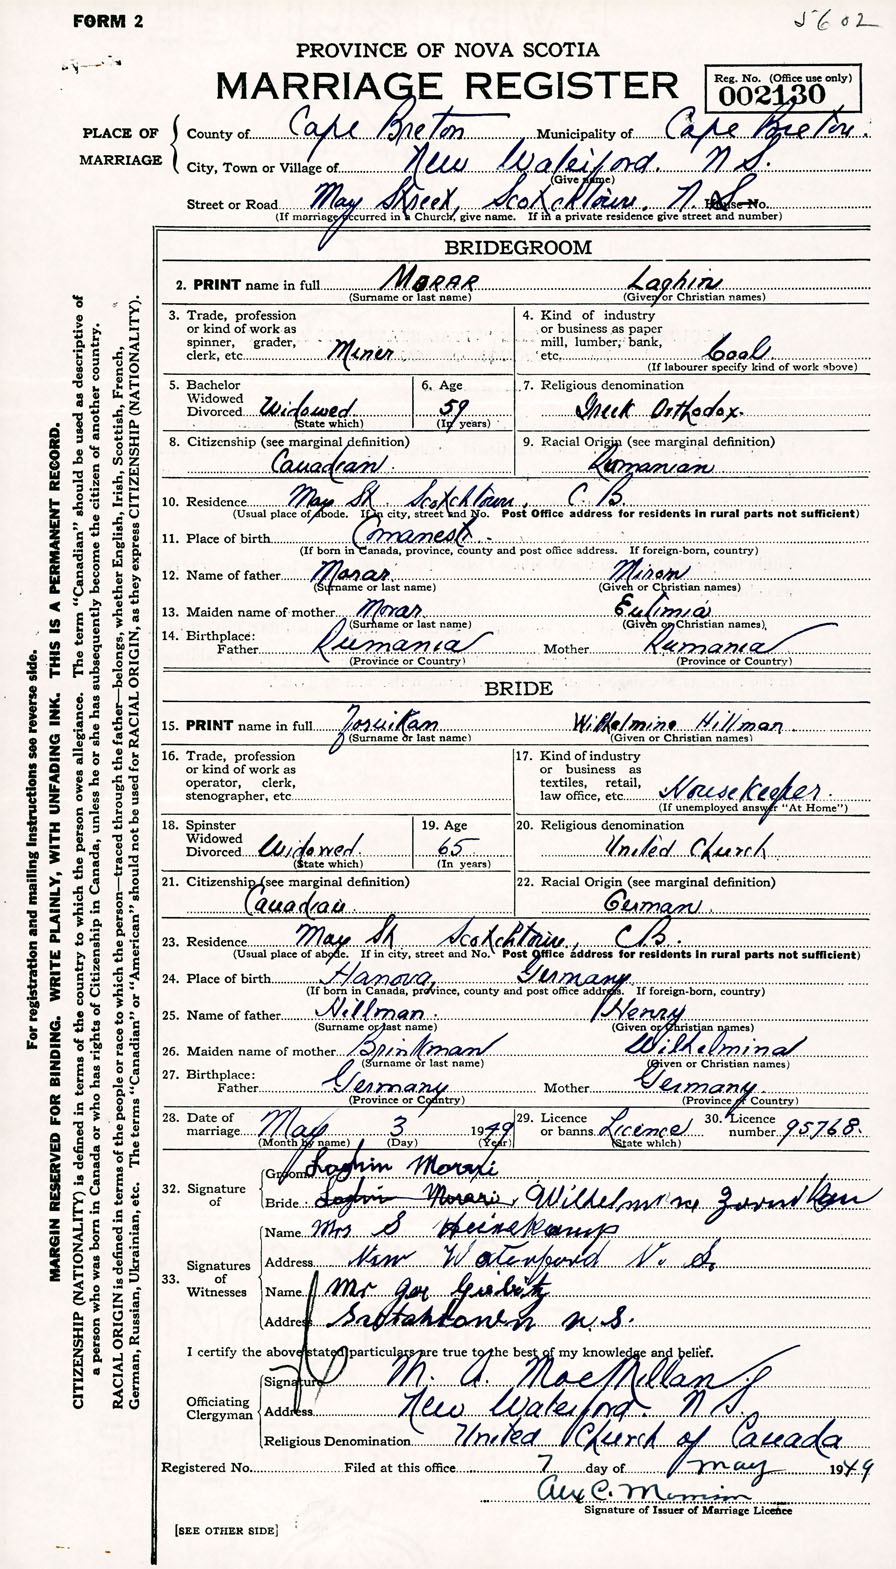 FORM 2
5602
PROVINCE OF NOVA SCOTIA
MARRIAGE REGISTER
Reg. No. (Office use only)
002130
PLACE OF MARRIAGE
County of Cape Breton Municipality of Cape Breton.
City, Town or Village of New Waterford. N S.
(Give name)
Street or Road May Street, Scotchtown, N. S. House No.
(If marriage occurred in a Church, give name. If in a private residence give street and number)
BRIDEGROOM
2. PRINT name in full MORAR Laghin
(Surname or last name) (Given or Christian names)
3. Trade, profession or kind of work as spinner, grader, clerk, etc. Miner
4. Kind of industry or business as paper mill, lumber, bank, etc. Coal
(If labourer specify kind of work above)
5. Bachelor Widowed Divorced Widowed
(State which)
6. Age 59
(In years)
7. Religious denomination Greek Orthodox.
8. Citizenship (see marginal definition) Canadian.
9. Racial Origin (see marginal definition) Rumanian
10. Residence May St. Scotchtown, C. B.
(Usual place of abode. If in city, street and No. Post Office address for residents in rural parts not sufficient)
11. Place of birth
(If born in Canada, province, county and post office address. If foreign-born, country)
12. Name of father Morar Miron
(Surname or last name) (Given or Christian names)
13. Maiden name of mother Morar Eutimia
(Surname or last name) (Given or Christian names)
14. Birthplace:
Father Rumania Mother Rumania
(Province or Country) (Province or Country)
BRIDE
15. PRINT name in full Wilhelmine Hillman
(Surname or last name) (Given or Christian names)
16. Trade, profession or kind of work as operator, clerk, stenographer, etc.
17. Kind of industry or business as textiles, retail, law office, etc. Housekeeper.
(If unemployed answer "At Home")
18. Spinster Widowed Divorced Widowed.
(State which)
19. Age 65
(In years)
20. Religious denomination United Church
21. Citizenship (see marginal definition) Canadian.
22. Racial Origin (see marginal definition) German.
23. Residence May St Scotchtown, C.B.
(Usual place of abode. If in city, street and No. Post Office address for residents in rural parts not sufficient)
24. Place of birth Hanova, Germany
(If born in Canada, province, county and post office address. If foreign-born, country)
25. Name of father Hillman. Henry
(Surname or last name) (Given or Christian names)
26. Maiden name of mother Brinkman Wilhelmina
(Surname or last name) (Given or Christian names)
27. Birthplace:
Father Germany Mother Germany.
(Province or Country) (Province or Country)
28. Date of marriage May 3 1949
(Month by name) (Day) (Year)
29. Licence or banns Licence
(State which)
30. Licence number 95768.
32. Signature of
Groom Laghin Morari
Bride Laghin Morari, Wilhelmine
33. Signatures of Witnesses
Name Mrs S Heinekamp
Address New Waterford N. S.
Name Mr
Address N. S.
I certify the above stated particulars are true to the best of my knowledge and belief.
Officiating Clergyman
Signature M. A. MacMillan
Address New Waterford. N S.
Religious Denomination United Church of Canada
Registered No. Filed at this office 7 day of May 1949
Alex C. Morrison
Signature of Issuer of Marriage Licence
[SEE OTHER SIDE]
For registration and mailing instructions see reverse side.
MARGIN RESERVED FOR BINDING. WRITE PLAINLY, WITH UNFADING INK. THIS IS A PERMANENT RECORD.
CITIZENSHIP (NATIONALITY) is defined in terms of the country to which the person owes allegiance. The term "Canadian" should be used as descriptive of
a person who was born in Canada or who has rights of Citizenship in Canada, unless he or she has subsequently become the citizen of another country.
RACIAL ORIGIN is defined in terms of the people or race to which the person—traced through the father—belongs, whether English, Irish, Scottish, French,
German, Russian, Ukrainian, etc. The terms "Canadian" or "American" should not be used for RACIAL ORIGIN, as they express CITIZENSHIP (NATIONALITY).